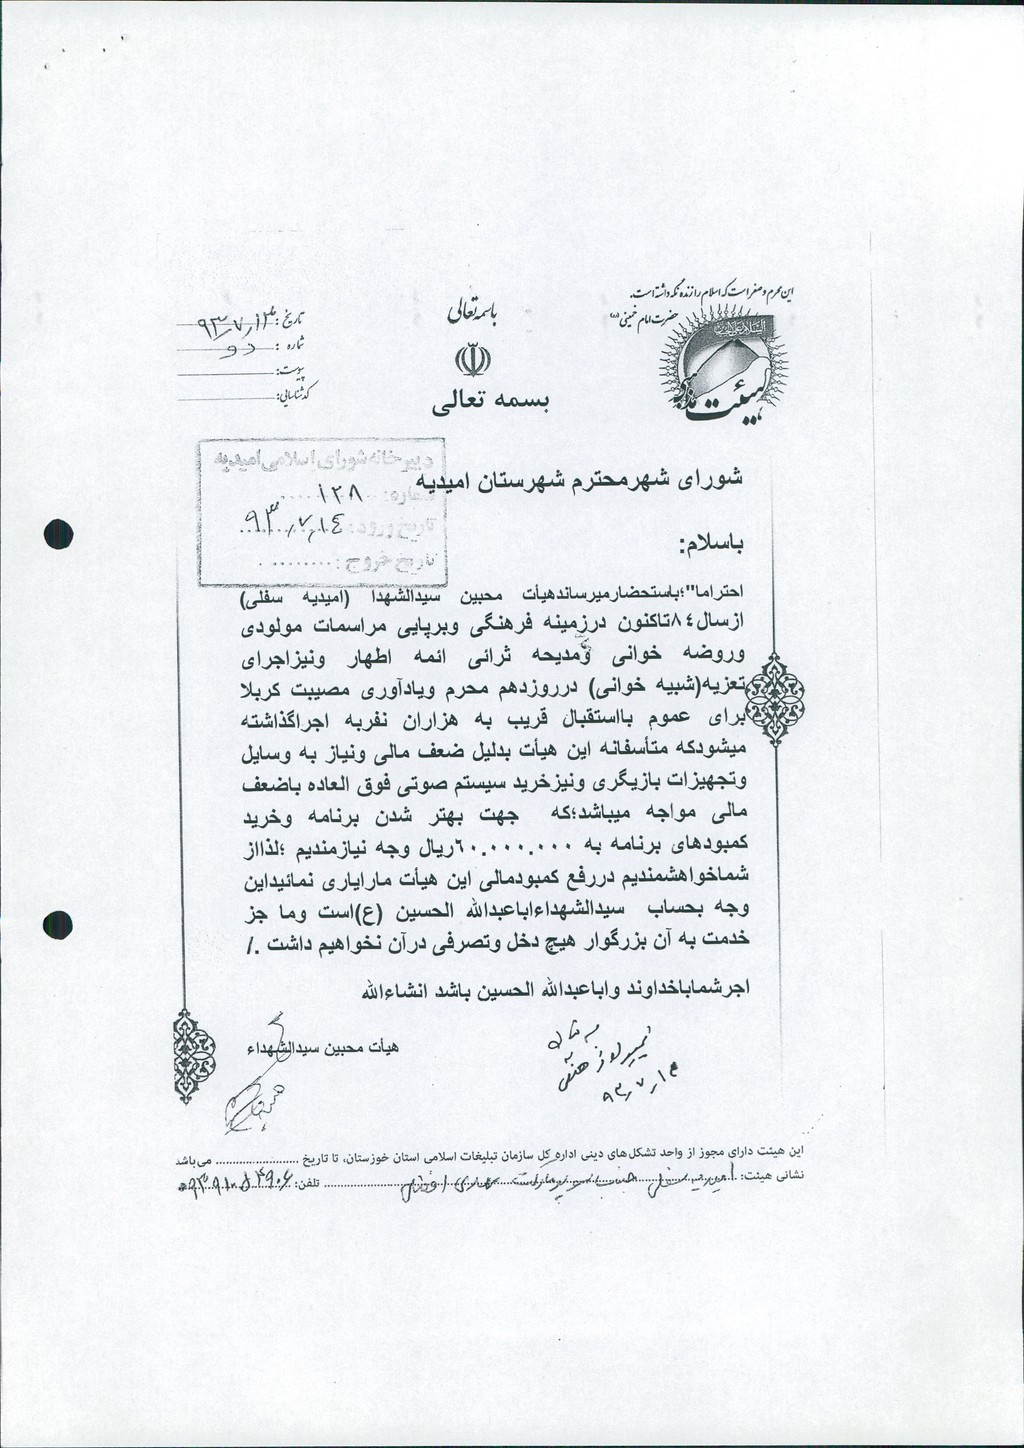 این محرم و صفر است که اسلام را زنده نگه داشته است.
حضرت امام خمینی (ره)
السلام علی الحسین
هیئت مذهبی
باسمه تعالی
بسمه تعالی
تاریخ: ۹۳٫۷٫۱۳
شماره: دو
پیوست:
کد شناسایی:
دبیرخانه شورای اسلامی امیدیه
شماره: ۱۲۸
تاریخ ورود: ۹۳٫۷٫۱۴
تاریخ خروج:
شورای شهرمحترم شهرستان امیدیه
باسلام:
احتراما"؛باستحضارمیرساندهیأت محبین سیدالشهدا (امیدیه سفلی)
ازسال۸۴تاکنون درزمینه فرهنگی وبرپایی مراسمات مولودی
وروضه خوانی ومدیحه ثرائی ائمه اطهار ونیزاجرای
تعزیه(شبیه خوانی) درروزدهم محرم ویادآوری مصیبت کربلا
برای عموم بااستقبال قریب به هزاران نفربه اجراگذاشته
میشودکه متأسفانه این هیأت بدلیل ضعف مالی ونیاز به وسایل
وتجهیزات بازیگری ونیزخرید سیستم صوتی فوق العاده باضعف
مالی مواجه میباشد؛که جهت بهتر شدن برنامه وخرید
کمبودهای برنامه به ۶۰.۰۰۰.۰۰۰ریال وجه نیازمندیم ؛لذااز
شماخواهشمندیم دررفع کمبودمالی این هیأت مارایاری نمائیداین
وجه بحساب سیدالشهداءاباعبدالله الحسین (ع)است وما جز
خدمت به آن بزرگوار هیچ دخل وتصرفی درآن نخواهیم داشت ./
اجرشماباخداوند واباعبدالله الحسین باشد انشاءالله
هیأت محبین سیدالشهداء
این هیئت دارای مجوز از واحد تشکل‌های دینی اداره کل سازمان تبلیغات اسلامی استان خوزستان، تا تاریخ ........................ می‌باشد
نشانی هیئت: امیدیه سفلی تلفن: